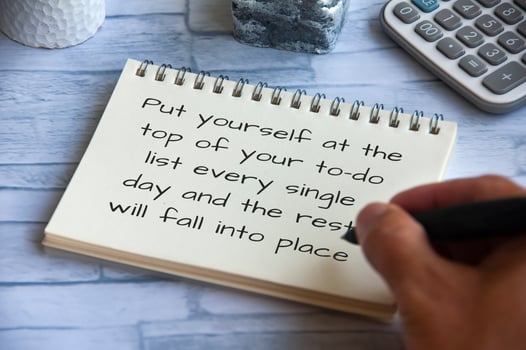 Put yourself at the
top of your to-do
list every single
day and the rest
will fall into place